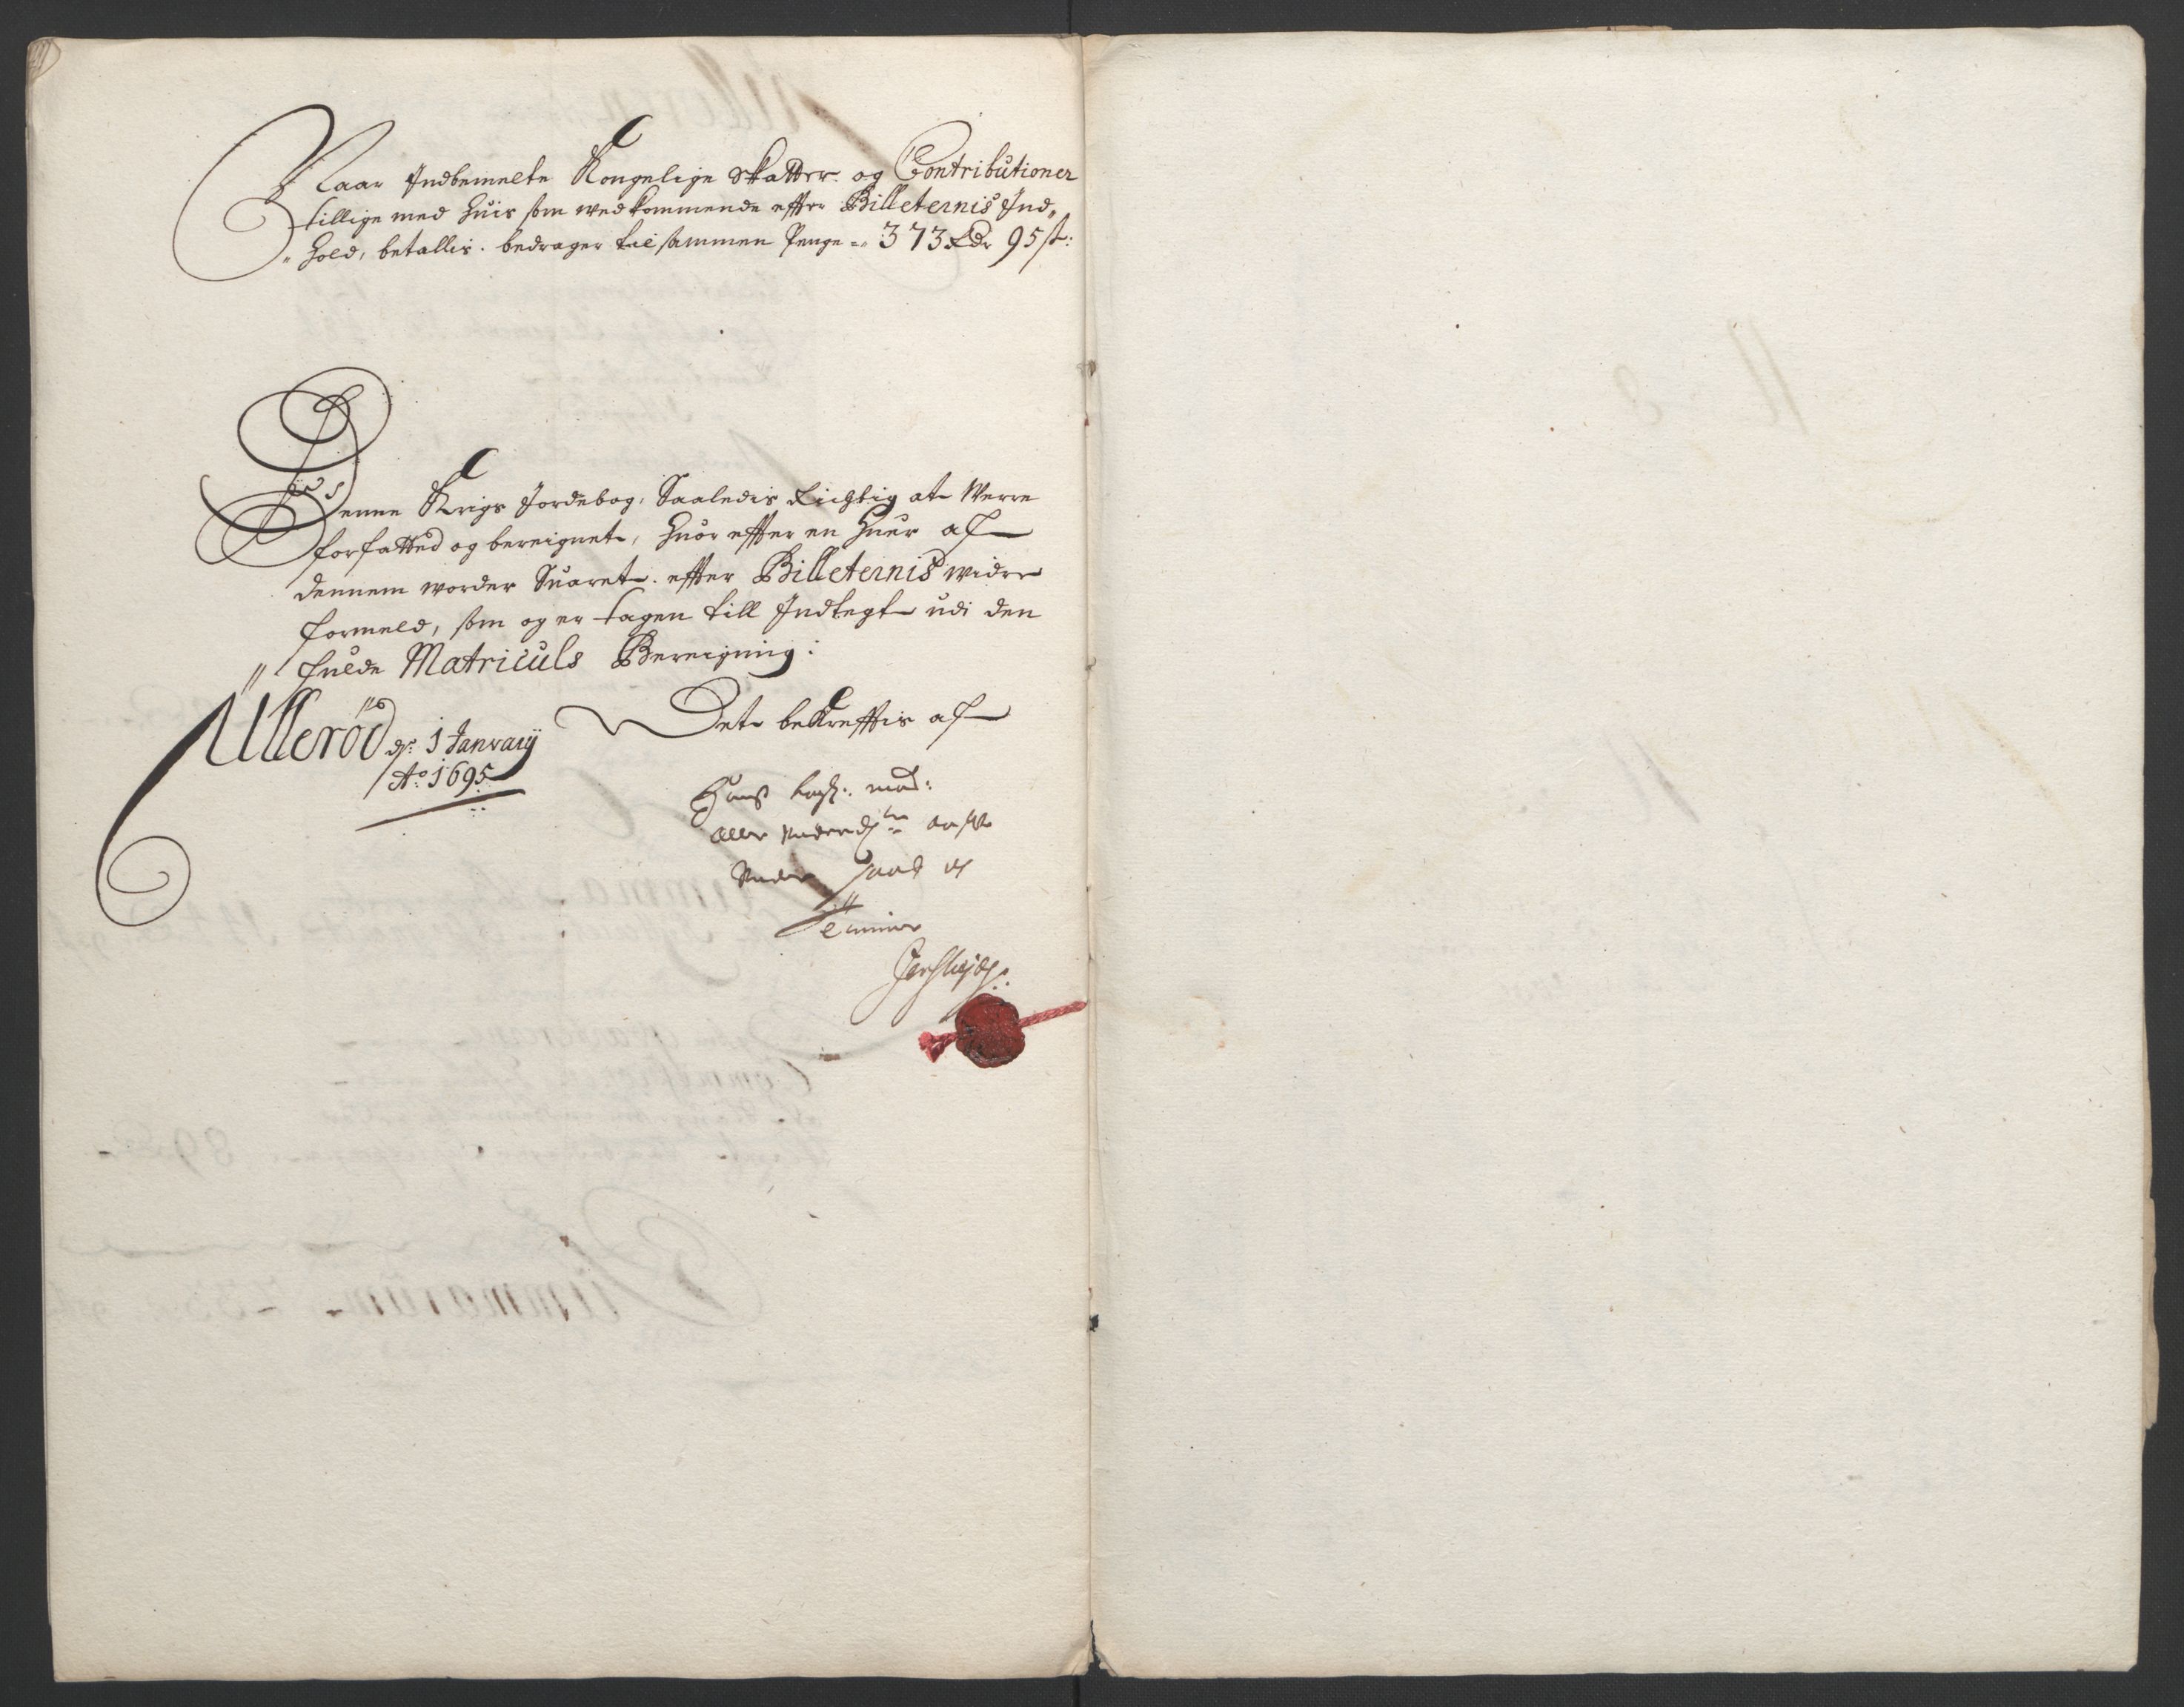 Naar Indbemelte Kongelige Skatter og Contributioner
tillige med huis som wedkommende effter Billeternis Ind„
„hold, betallis. bedrager tilsammen Penge -- 373 Rdr 95 s:
Denne Krigs Jordebog, Saaledis Richtig at Werre
forfatted og bereignet, huor effter en huer af
dennem worder Suaret. effter Billeternis widre
formeld, som og er tagen till Indtegt udi den
„ fulde Matriculs Bereigning:
Ullerød d. 1 January
Ao: 1695
Det bekreffter af